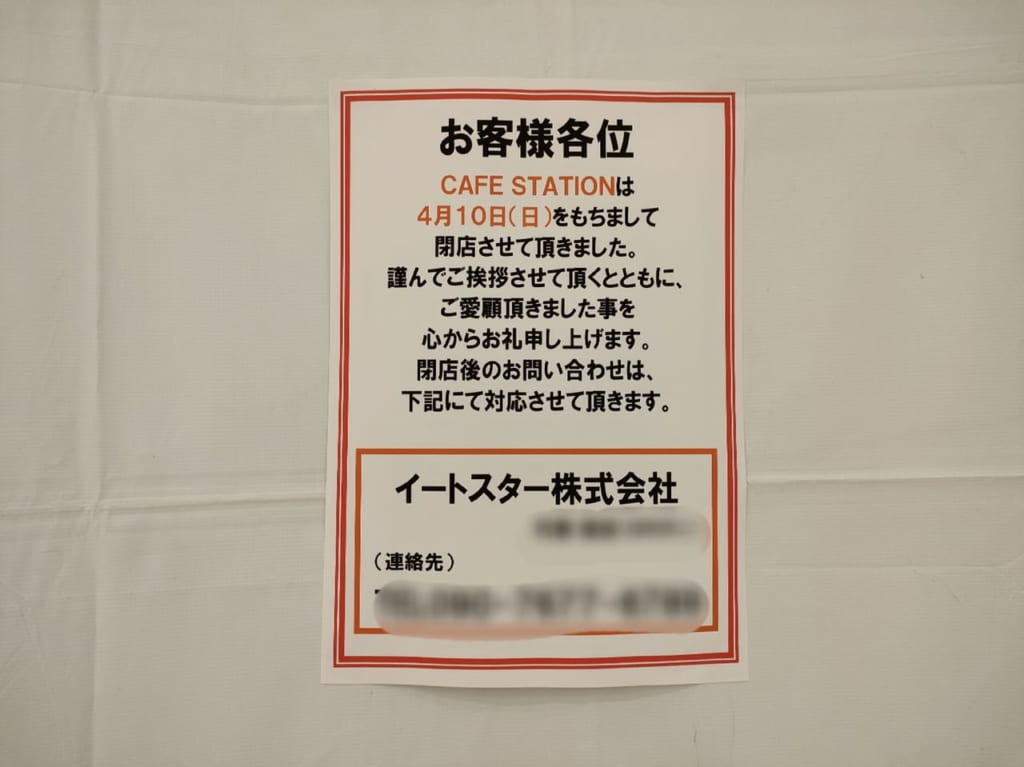 お客様各位
CAFE STATIONは
4月10日(日)をもちまして
閉店させて頂きました。
謹んでご挨拶させて頂くとともに、
ご愛顧頂きました事を
心からお礼申し上げます。
閉店後のお問い合わせは、
下記にて対応させて頂きます。
イートスター株式会社
(連絡先)